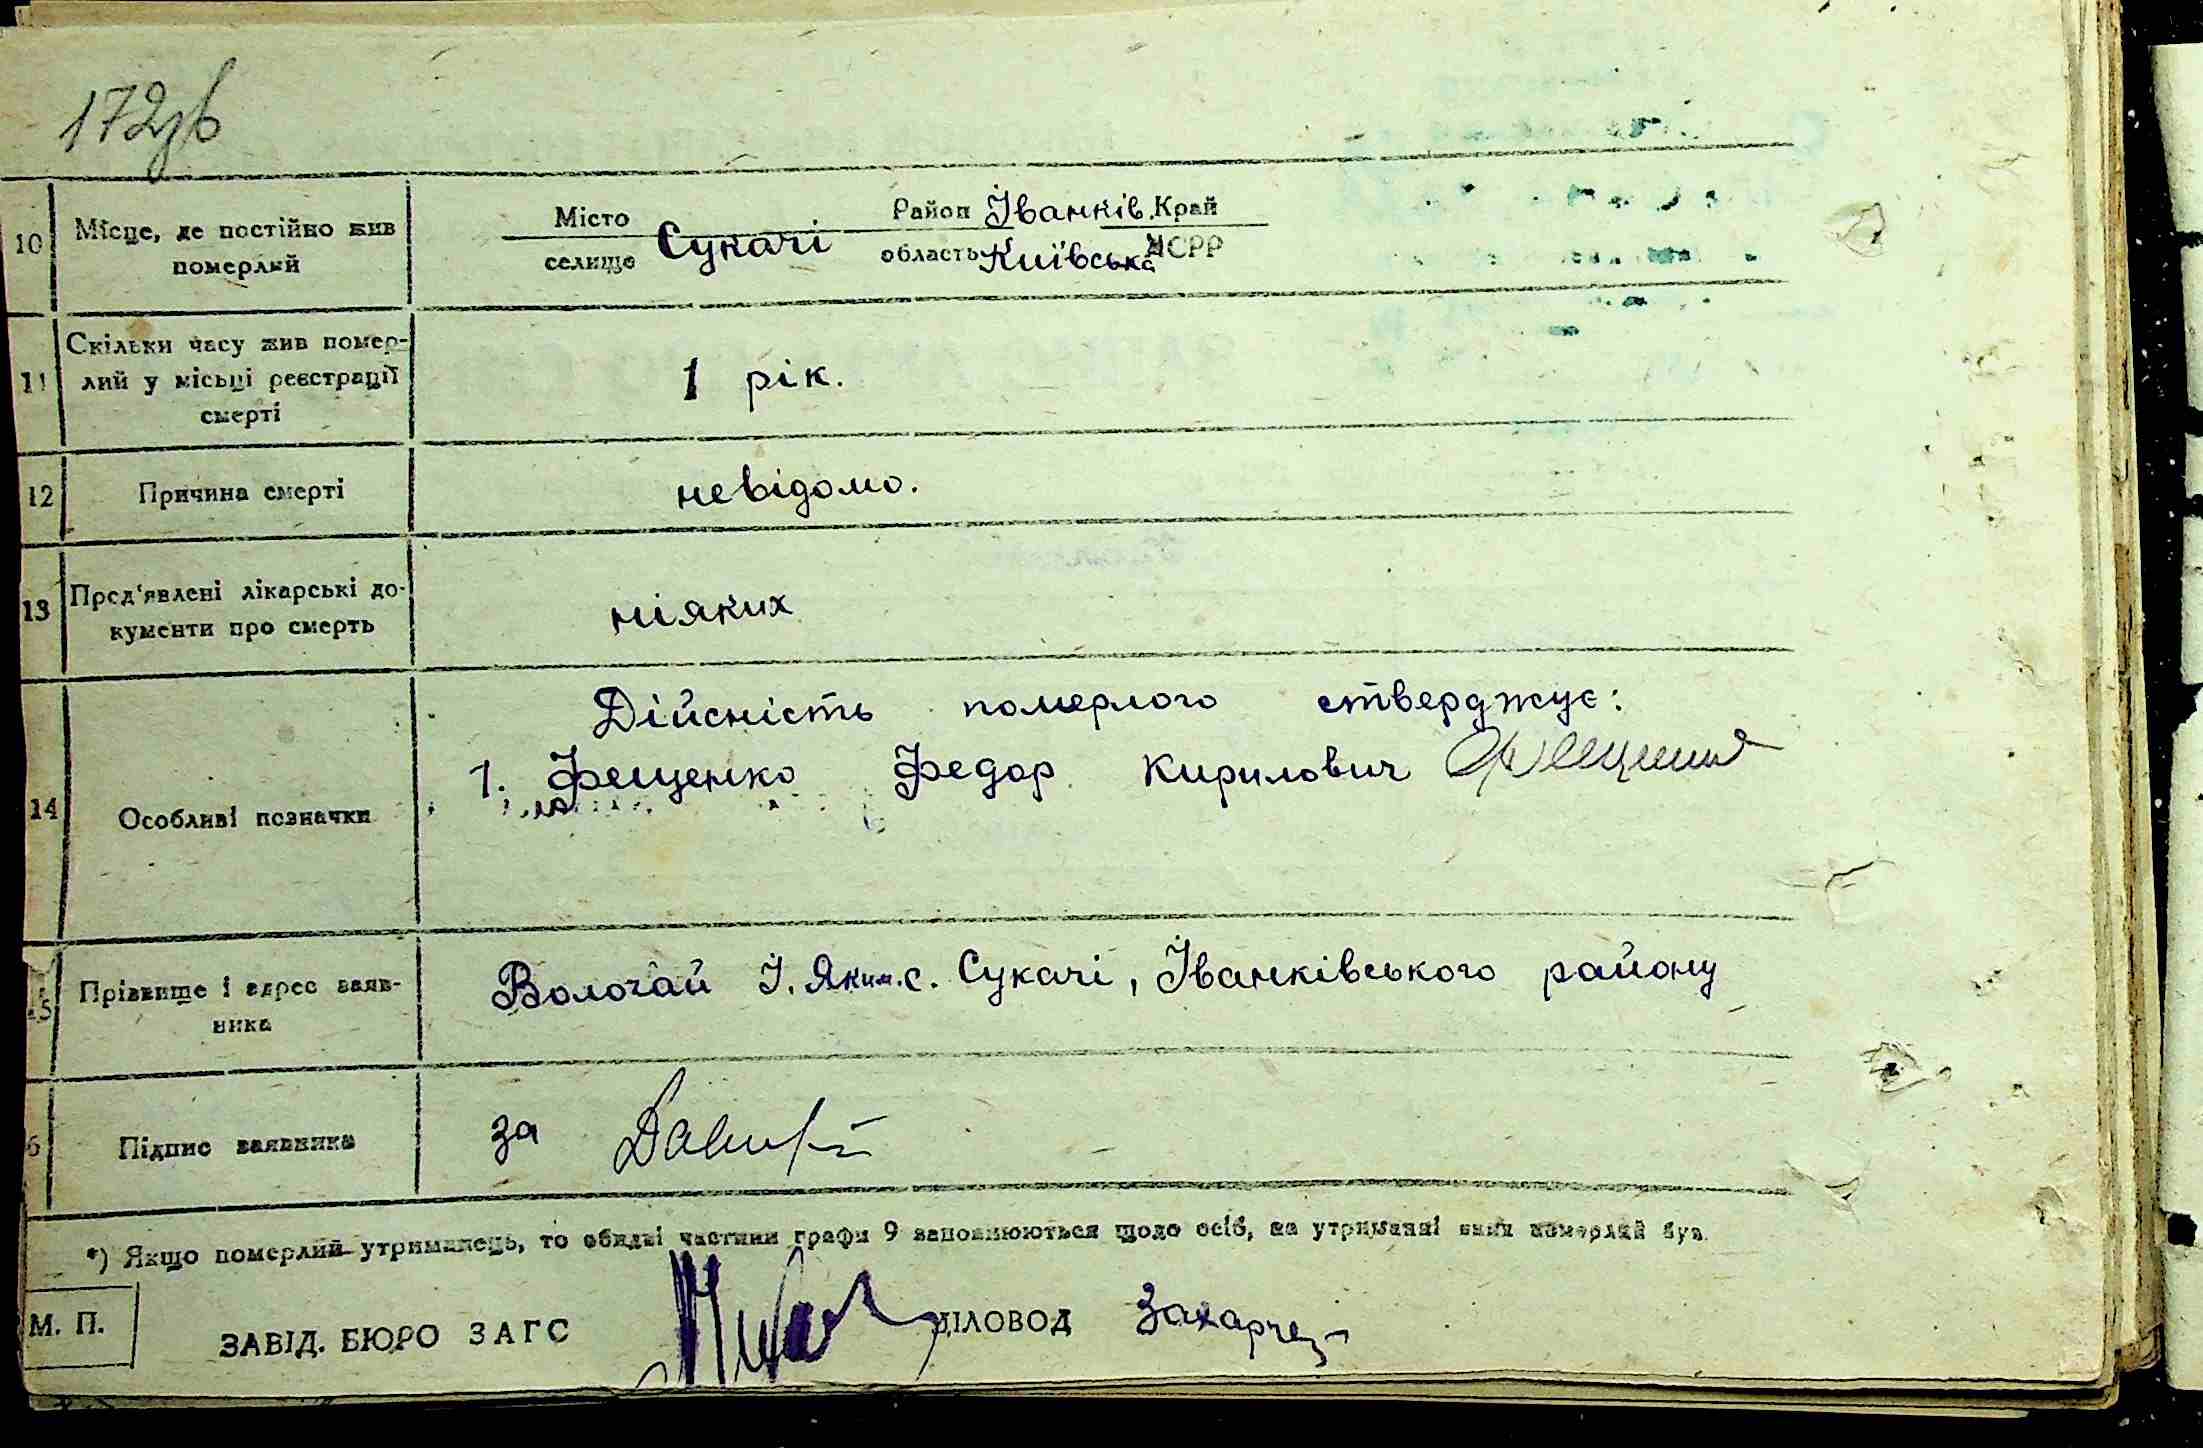 172зв
10 Місце, де постійно жив Місто Район Іванків. Край
померлий селище Сукачі область Київська УСРР
11 Скільки часу жив помер-
лий у місьці реєстрації 1 рік.
смерті
12 Причина смерті невідомо.
13 Пред'явлені лікарські до- ніяких
кументи про смерть
14 Особливі позначки Дійсність померлого стверджує:
1. Фещенко Федор Кирилович
15 Прізвище і адрес заяв- Вологай І. Яким. с. Сукачі, Іванківського району
ника
6 Підпис заявника за
*) Якщо померлий утриманець, то обидві частини графи 9 заповнюються щодо осіб, на утриманні яких померлий був.
М. П. ЗАВІД. БЮРО ЗАГС ДІЛОВОД